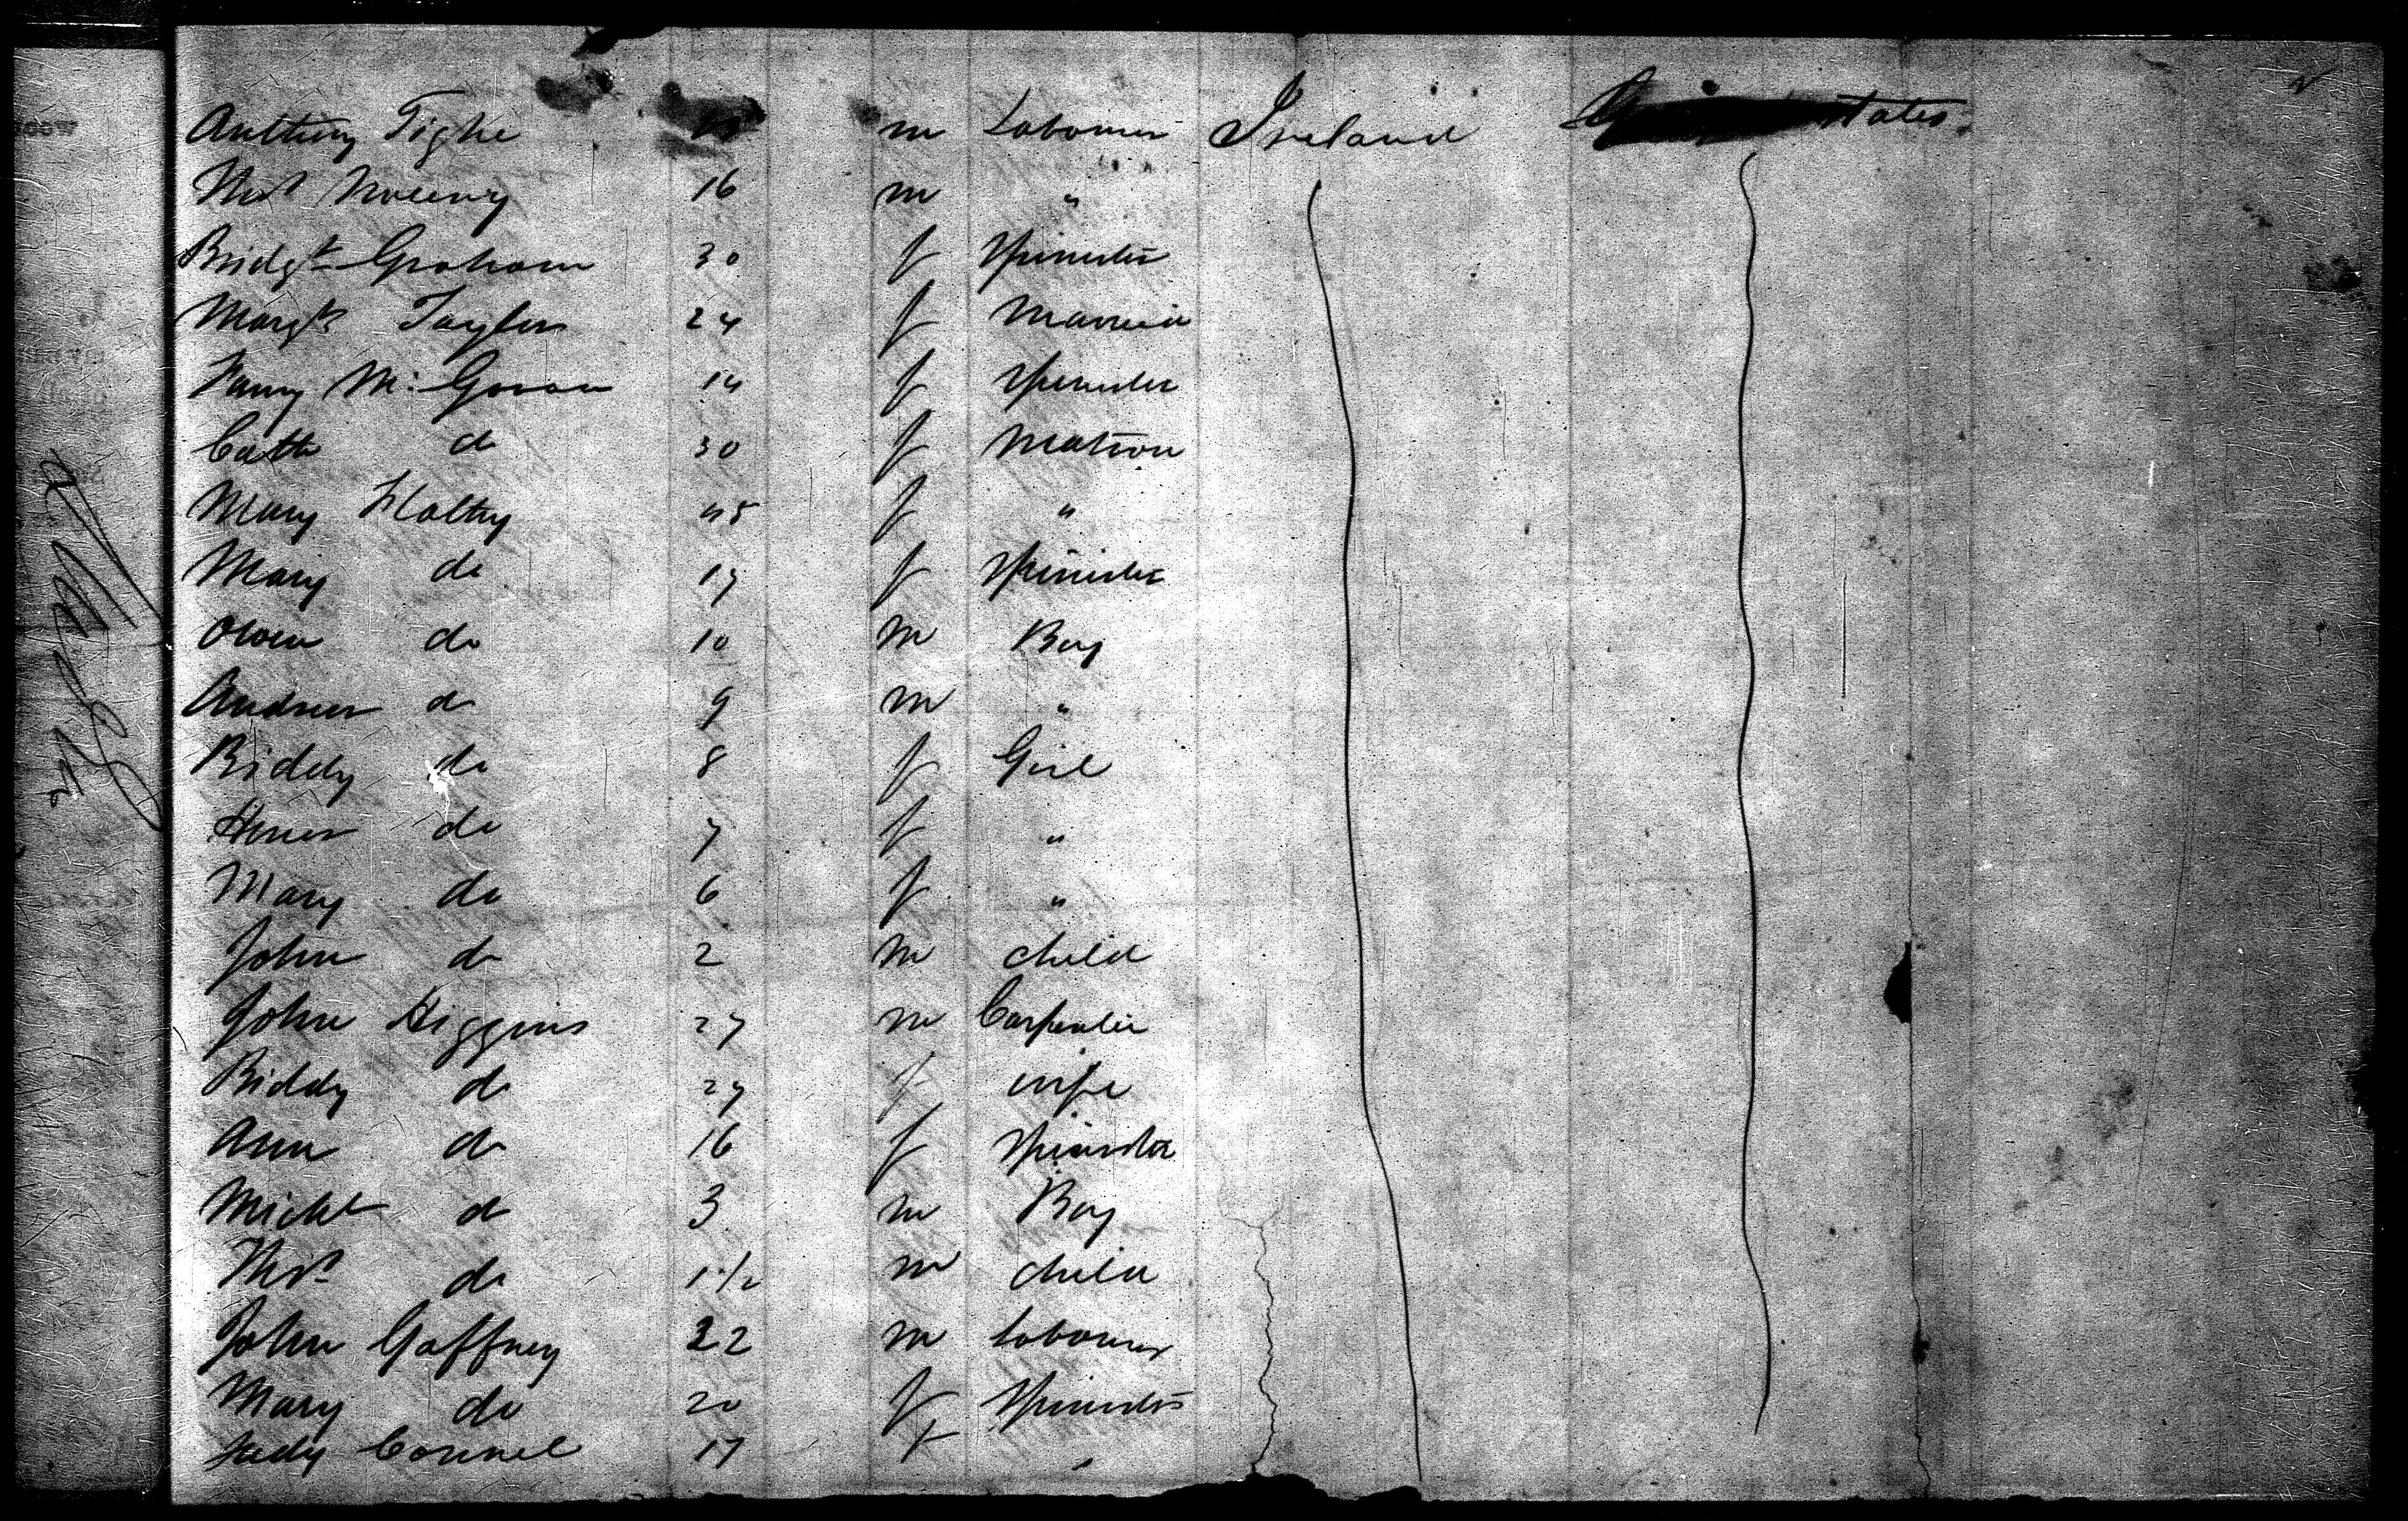 Anthony Tighe m Labourer Ireland States
Thos 16 m "
Bridgt Graham 30 f Spinster
Margt Taylor 24 f Married
Fanny Mc Gowan 14 f Spinster
Cath do 30 f Matron
Mary Flathy 45 f "
Mary do 17 f Spinster
Owen do 10 m Boy
Andrew do 9 m "
Biddy do 8 f Girl
Honor do 7 f "
Mary do 6 f "
John do 2 m child
John Higgins 27 m Carpenter
Biddy do 27 f wife
Ann do 16 f Spinster
Michl do 3 m Boy
Thos do 1 1/2 m child
John Gaffney 22 m Labourer
Mary do 20 f Spinster
Judy Connel 17 f "